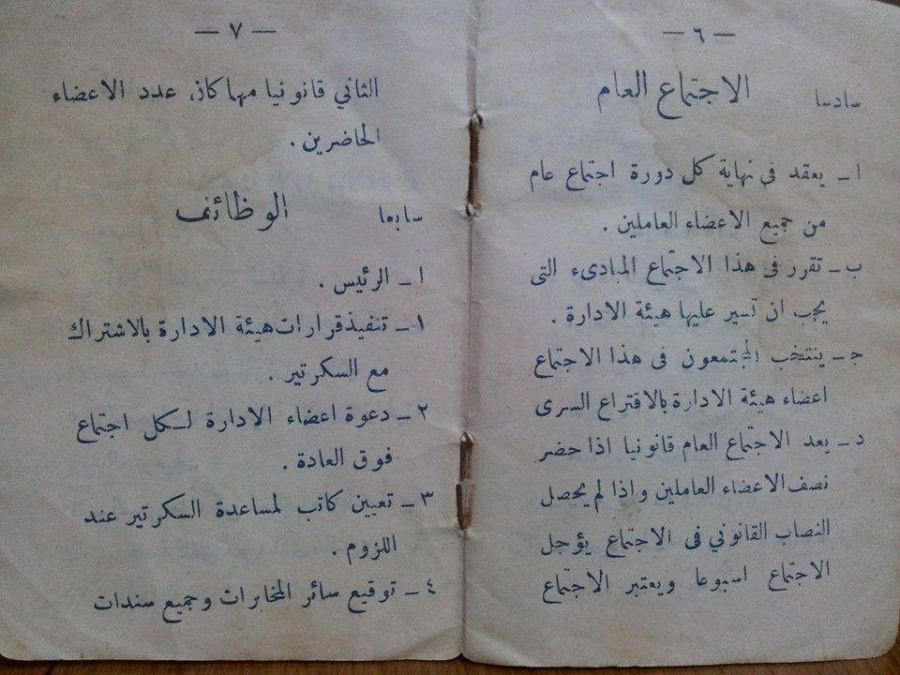 — ٦ —
سادسا الاجتماع العام
ا – يعقد في نهاية كل دورة اجتماع عام
من جميع الاعضاء العاملين .
ب – تقرر في هذا الاجتماع المبادىء التي
يجب ان تسير عليها هيئة الادارة .
ج – ينتخب المجتمعون في هذا الاجتماع
اعضاء هيئة الادارة بالاقتراع السرى
د – يعد الاجتماع العام قانونيا اذا حضر
نصف الاعضاء العاملين واذا لم يحصل
النصاب القانوني في الاجتماع يؤجل
الاجتماع اسبوعا ويعتبر الاجتماع
— ٧ —
الثاني قانونيا مهما كان عدد الاعضاء
الحاضرين .
سابعا الوظائف
ا – الرئيس .
١ – تنفيذ قرارات هيئة الادارة بالاشتراك
مع السكرتير .
٢ – دعوة اعضاء الادارة لكل اجتماع
فوق العادة .
٣ – تعيين كاتب لمساعدة السكرتير عند
اللزوم .
٤ – توقيع سائر المخابرات وجميع سندات